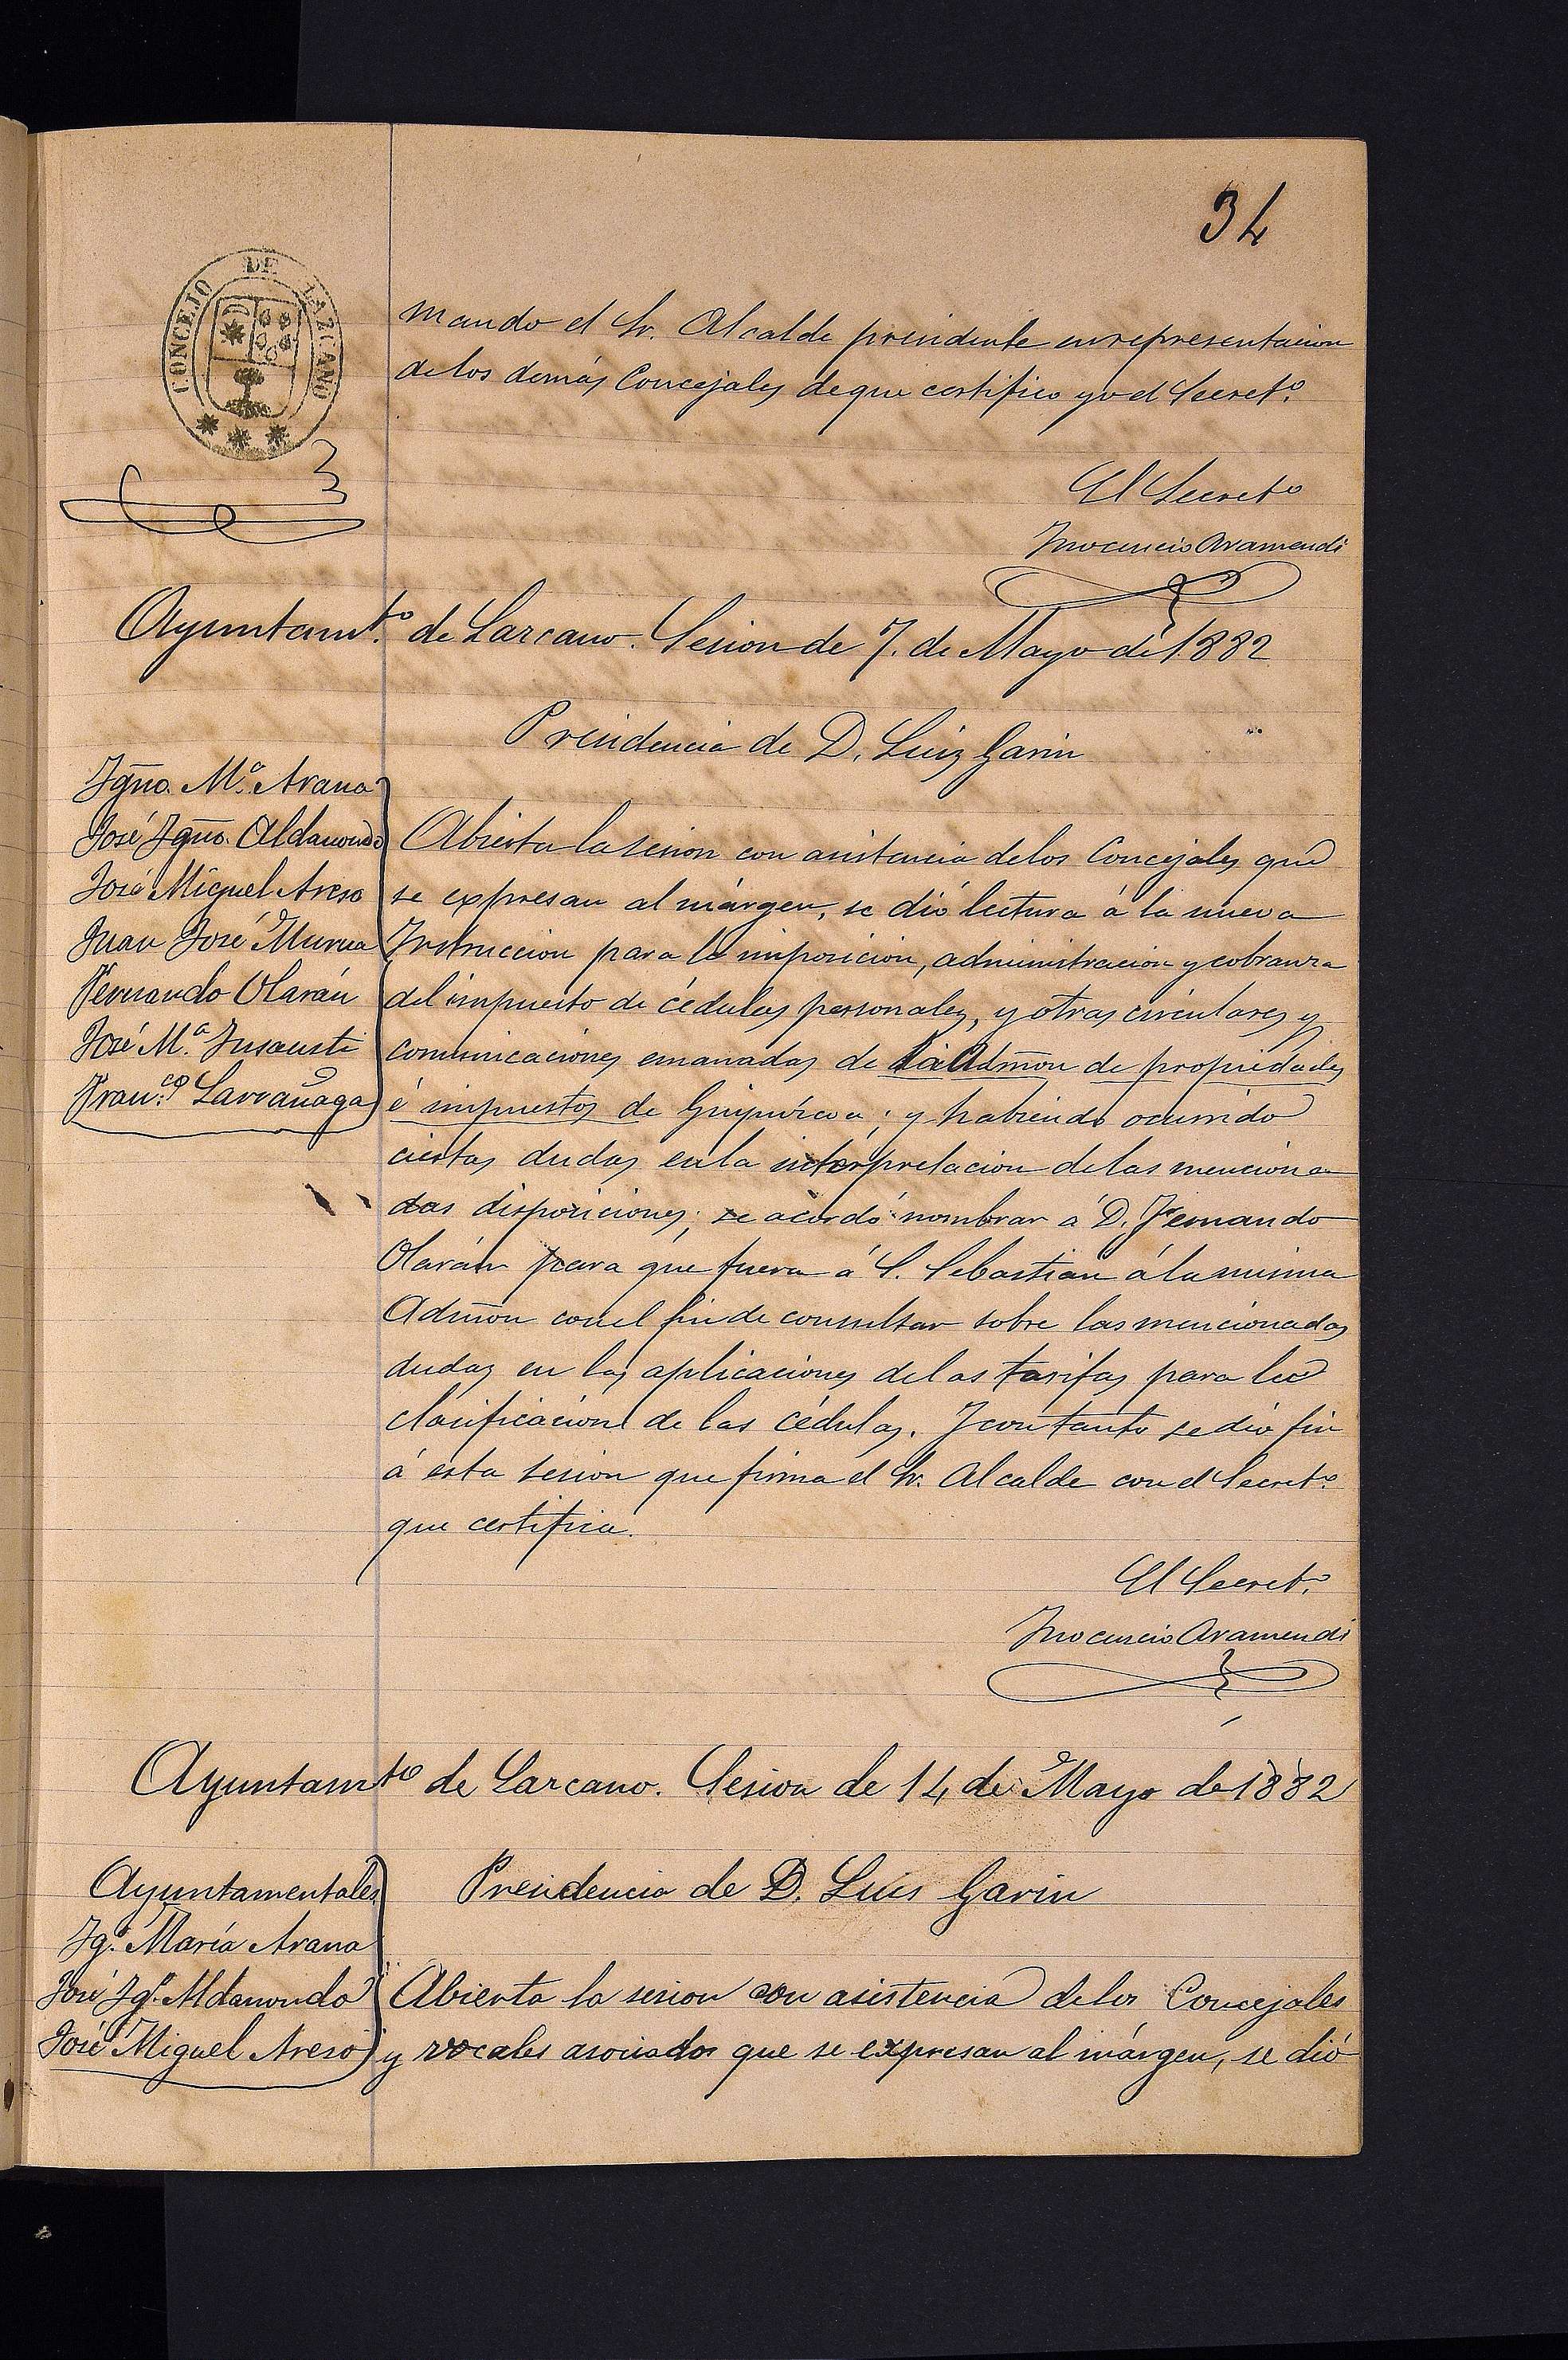 34
CONCEJO DE LAZCANO
mando el Sr. Alcalde presidente en representacion
de los demás Concejales de que certifico yo el Secret.º
El Secret.º
Inocencio Aramendi
Ayuntamt.º de Lazcano. Sesion de 7. de Mayo de 1882
Presidencia de D. Luiz Garin
Ygno. M.ª Arana
José Ygno. Aldanondo
José Miguel Areso
Juan José Murua
Fernando Olarán
José M.ª Insausti
Fran.co Larrañaga
Abierta la sesion con asistencia de los Concejales que
se expresan al márgen, se dió lectura á la nueva
Instruccion para la imposicion, administracion y cobranza
del impuesto de cédulas personales, y otras circulares y
comunicaciones emanadas de la Admon de propiedades
é impuestos de Guipúzcoa; y habiendo ocurrido
ciertas dudas en la interpretacion de las menciona
das disposiciones; se acordó nombrar á D. Fernando
Olarán para que fuera á S. Sebastian á la misma
Admon con el fin de consultar sobre las mencionadas
dudas en las aplicaciones de las tarifas para la
clasificacion de las cédulas. Y con tanto se dió fin
á esta sesion que firma el Sr. Alcalde con el Secret.º
que certifica.
El Secret.º
Inocencio Aramendi
Ayuntamt.º de Lazcano. Sesion de 14 de Mayo de 1882
Presidencia de D. Luis Garin
Ayuntamentales
Yg.º María Arana
José Yg.º Aldanondo
José Miguel Areso
Abierta la sesion con asistencia de los Concejales
y vocales asociados que se expresan al márgen, se dió